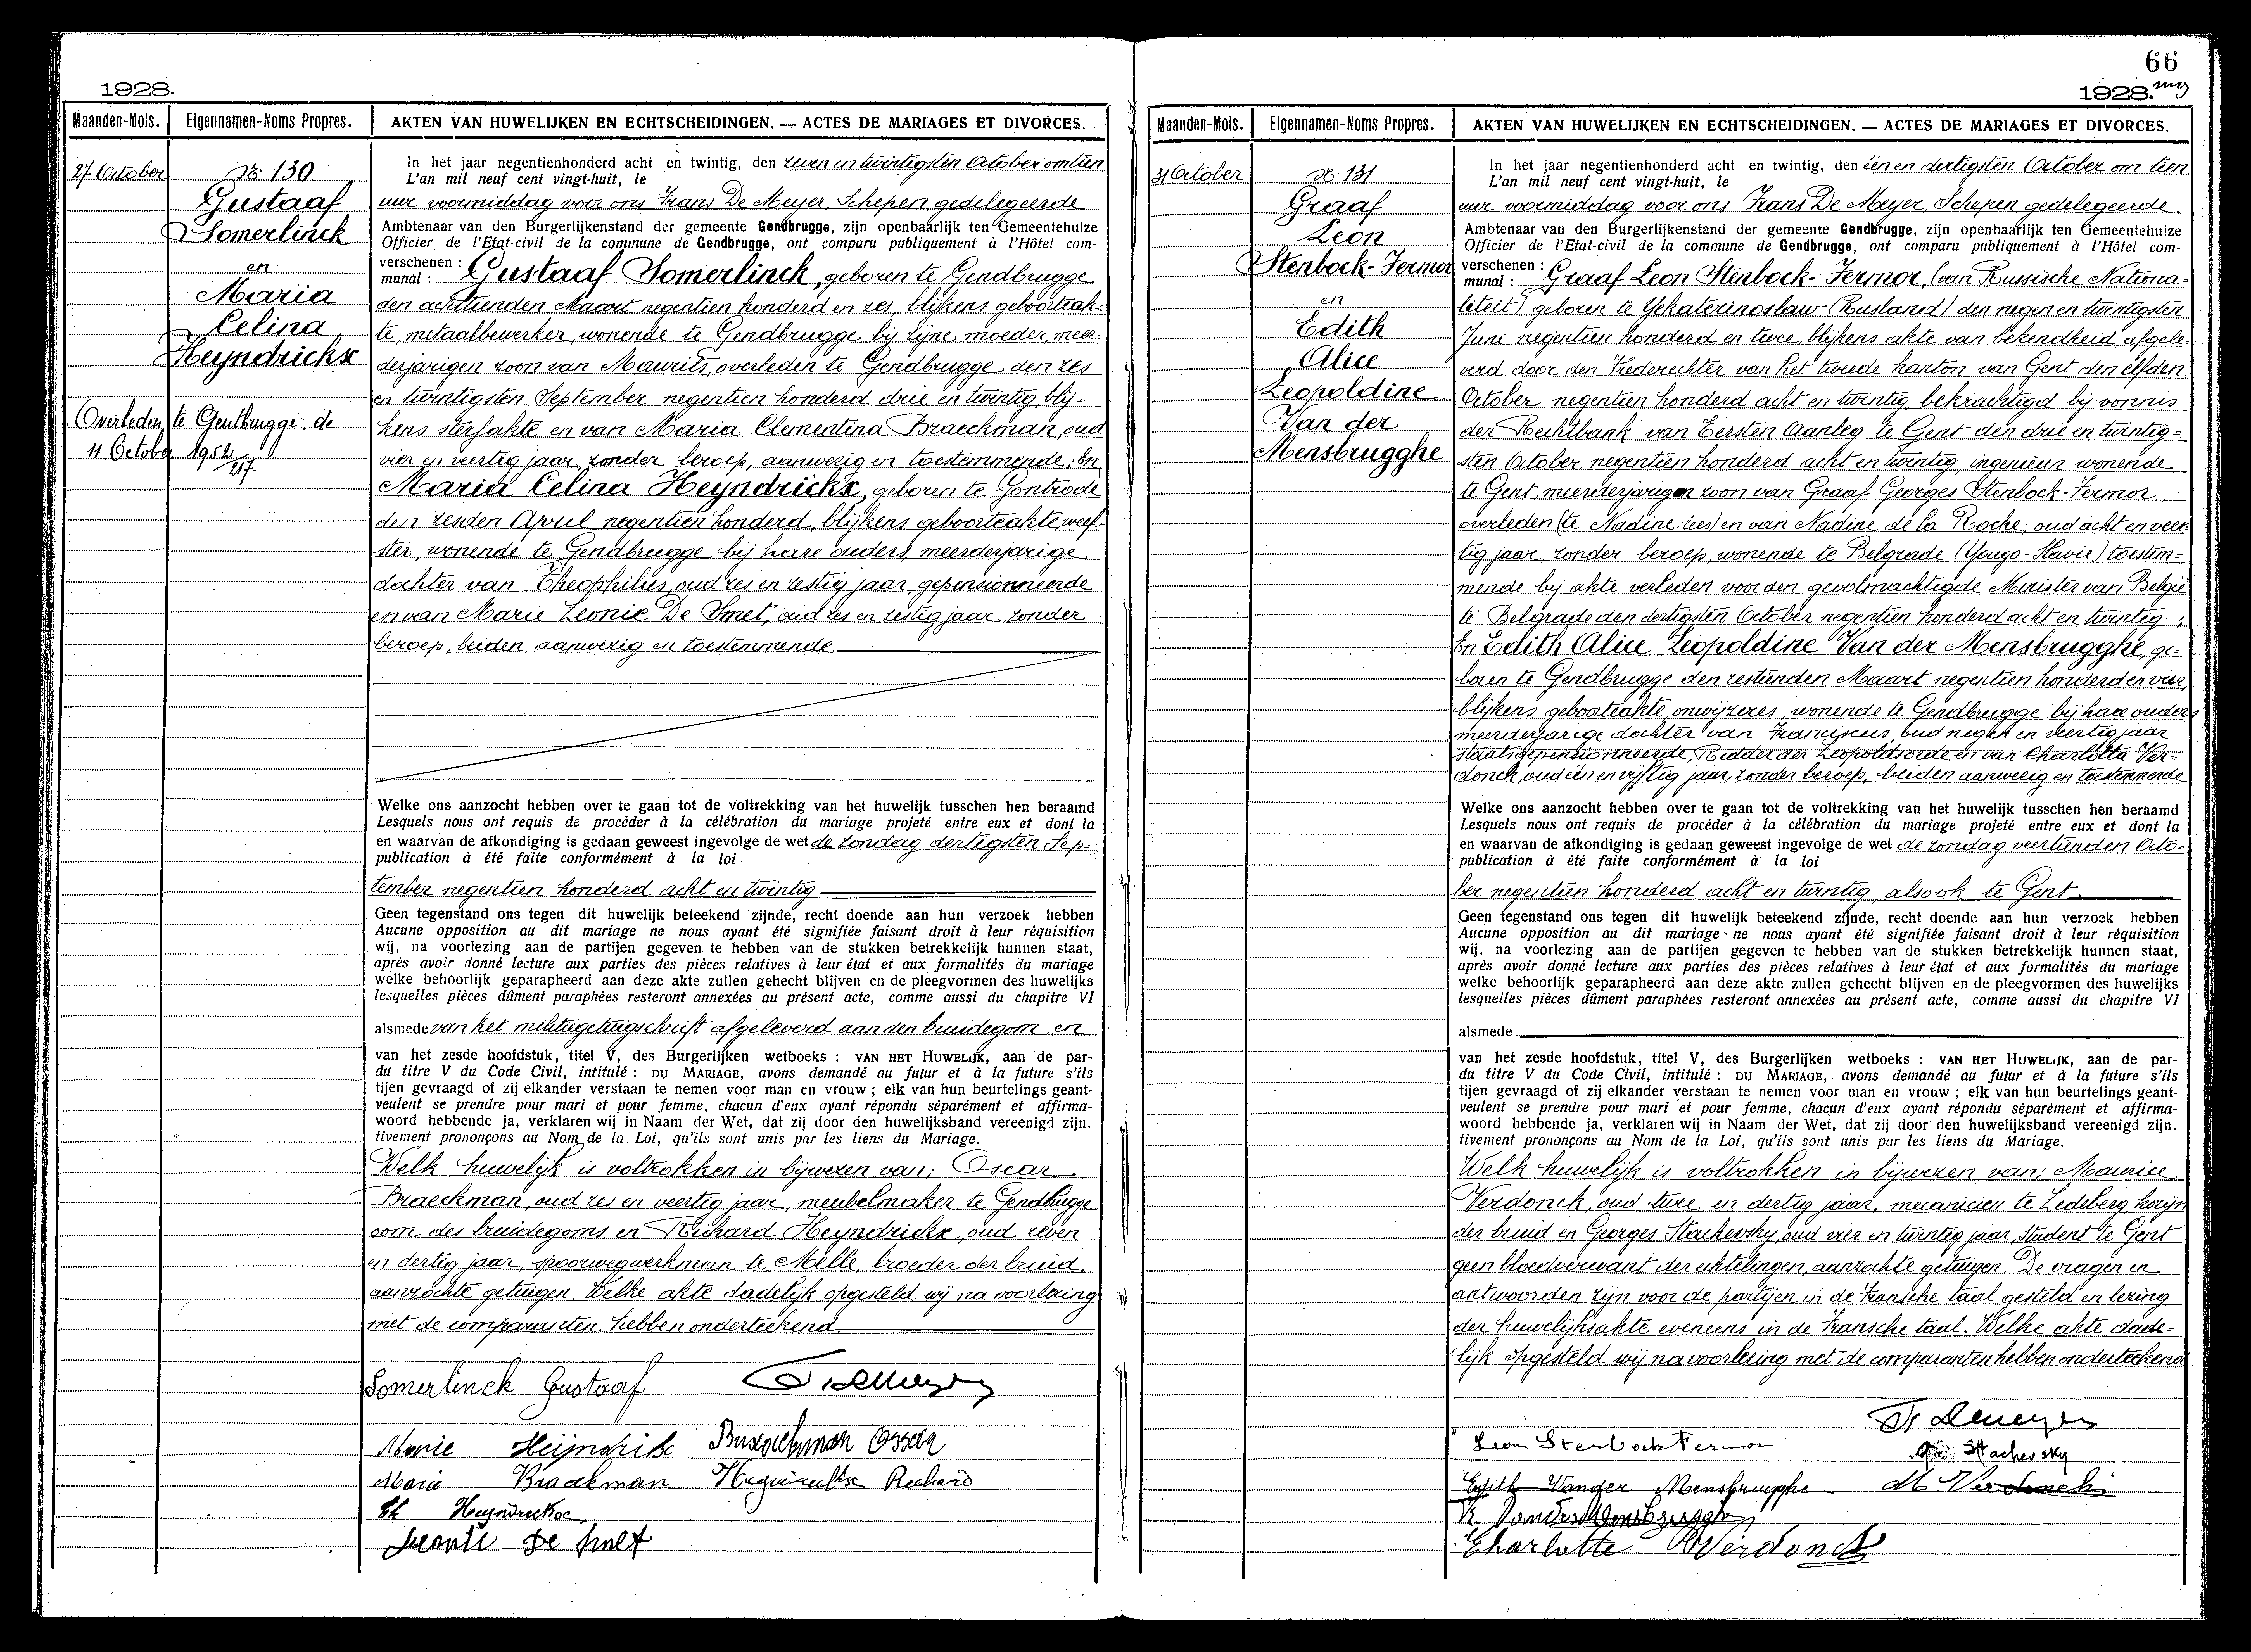 1928.
Maanden-Mois. Eigennamen-Noms Propres. AKTEN VAN HUWELIJKEN EN ECHTSCHEIDINGEN. — ACTES DE MARIAGES ET DIVORCES.
27 October
N: 130
Gustaaf
Somerlinck
en
Maria
Celina
Heyndrickx
Overleden te Gentbrugge de
11 October 1952
217.
In het jaar negentienhonderd acht en twintig, den zeven en twintigsten October om tien
L'an mil neuf cent vingt-huit, le
uur voormiddag voor ons Frans De Meyer, Schepen gedelegeerde
Ambtenaar van den Burgerlijkenstand der gemeente Gendbrugge, zijn openbaarlijk ten Gemeentehuize
Officier de l'Etat-civil de la commune de Gendbrugge, ont comparu publiquement à l'Hôtel com-
verschenen :
munal : Gustaaf Somerlinck, geboren te Gendbrugge
den achttienden Maart negentien honderd en zes, blijkens geboorteak-
te, metaalbewerker, wonende te Gendbrugge bij zijne moeder, meer-
derjarigen zoon van Maurits, overleden te Gendbrugge den zes
en twintigsten September negentien honderd drie en twintig, blij-
kens sterfakte en van Maria Clementina Braeckman, oud
vier en veertig jaar, zonder beroep, aanwezig en toestemmende; En
Maria Celina Heyndrickx, geboren te Gontrode
den zesden April negentien honderd, blijkens geboorteakte, weef-
ster, wonende te Gendbrugge bij hare ouders, meerderjarige
dochter van Theophilus, oud zes en zestig jaar, gepensionneerde
en van Marie Leonie De Smet, oud zes en zestig jaar, zonder
beroep, beiden aanwezig en toestemmende
Welke ons aanzocht hebben over te gaan tot de voltrekking van het huwelijk tusschen hen beraamd
Lesquels nous ont requis de procéder à la célébration du mariage projeté entre eux et dont la
en waarvan de afkondiging is gedaan geweest ingevolge de wet de zondag dertigsten Sep-
publication à été faite conformément à la loi
tember negentien honderd acht en twintig
Geen tegenstand ons tegen dit huwelijk beteekend zijnde, recht doende aan hun verzoek hebben
Aucune opposition au dit mariage ne nous ayant été signifiée faisant droit à leur réquisition
wij, na voorlezing aan de partijen gegeven te hebben van de stukken betrekkelijk hunnen staat,
après avoir donné lecture aux parties des pièces relatives à leur état et aux formalités du mariage
welke behoorlijk geparapheerd aan deze akte zullen gehecht blijven en de pleegvormen des huwelijks
lesquelles pièces dûment paraphées resteront annexées au présent acte, comme aussi du chapitre VI
alsmede van het militiegetuigschrift afgeleverd aan den bruidegom en
van het zesde hoofdstuk, titel V, des Burgerlijken wetboeks : VAN HET HUWELIJK, aan de par-
du titre V du Code Civil, intitulé : DU MARIAGE, avons demandé au futur et à la future s'ils
tijen gevraagd of zij elkander verstaan te nemen voor man en vrouw ; elk van hun beurtelings geant-
veulent se prendre pour mari et pour femme, chacun d'eux ayant répondu séparément et affirma-
woord hebbende ja, verklaren wij in Naam der Wet, dat zij door den huwelijksband vereenigd zijn.
tivement prononçons au Nom de la Loi, qu'ils sont unis par les liens du Mariage.
Welk huwelijk is voltrokken in bijwezen van: Oscar
Braeckman, oud zes en veertig jaar, meubelmaker te Gendbrugge
oom des bruidegoms en Richard Heyndrickx, oud zeven
en dertig jaar, spoorwegwerkman te Melle, broeder der bruid,
aanzochte getuigen. Welke akte dadelijk opgesteld wij na voorlezing
met de comparanten hebben onderteekend
Somerlinck Gustaaf
Marie Heijndrikx Braeckman Oscar
Marie Braekman Heyndrickx Richard
Th Heyndrickx
Leonie De Smet
66
1928.
Maanden-Mois. Eigennamen-Noms Propres. AKTEN VAN HUWELIJKEN EN ECHTSCHEIDINGEN. — ACTES DE MARIAGES ET DIVORCES.
31 October
N: 131
Graaf
Leon
Stenbock-Fermor
en
Edith
Alice
Leopoldine
Van der
Mensbrugghe
In het jaar negentienhonderd acht en twintig, den één en dertigsten October om tien
L'an mil neuf cent vingt-huit, le
uur voormiddag voor ons Frans De Meyer, Schepen gedelegeerde
Ambtenaar van den Burgerlijkenstand der gemeente Gendbrugge, zijn openbaarlijk ten Gemeentehuize
Officier de l'Etat-civil de la commune de Gendbrugge, ont comparu publiquement à l'Hôtel com-
verschenen :
munal : Graaf Leon Stenbock-Fermor, (van Russische Nationa-
liteit) geboren te Yekaterinoslaw (Rusland) den negen en twintigsten
Juni negentien honderd en twee, blijkens akte van bekendheid, afgele-
verd door den Vrederechter van het tweede kanton van Gent den elfden
October negentien honderd acht en twintig, bekrachtigd bij vonnis
der Rechtbank van Eersten Aanleg te Gent den drie en twintig-
sten October negentien honderd acht en twintig, ingenieur wonende
te Gent, meerderjarigen zoon van Graaf Georges Stenbock-Fermor,
overleden (te Nadine: lees) en van Nadine de la Roche, oud acht en veer-
tig jaar, zonder beroep, wonende te Belgrade (Yougo-Slavie) toestem-
mende bij akte verleden voor den gevolmachtigde Minister van België
te Belgrade den dertigsten October negentien honderd acht en twintig;
En Edith Alice Leopoldine Van der Mensbrugghe, ge-
boren te Gendbrugge den zestienden Maart negentien honderd en vier,
blijkens geboorteakte, onwijzeres, wonende te Gendbrugge bij hare ouders
meerderjarige dochter van Franciscus, oud negen en veertig jaar
staatsgepensionneerde, Ridder der Leopoldsorde en van Charlotta Ver-
donck, oud één en vijftig jaar, zonder beroep, beiden aanwezig en toestemmende
Welke ons aanzocht hebben over te gaan tot de voltrekking van het huwelijk tusschen hen beraamd
Lesquels nous ont requis de procéder à la célébration du mariage projeté entre eux et dont la
en waarvan de afkondiging is gedaan geweest ingevolge de wet de zondag veertienden Octo-
publication à été faite conformément à la loi
ber negentien honderd acht en twintig, alsook te Gent
Geen tegenstand ons tegen dit huwelijk beteekend zijnde, recht doende aan hun verzoek hebben
Aucune opposition au dit mariage ne nous ayant été signifiée faisant droit à leur réquisition
wij, na voorlezing aan de partijen gegeven te hebben van de stukken betrekkelijk hunnen staat,
après avoir donné lecture aux parties des pièces relatives à leur état et aux formalités du mariage
welke behoorlijk geparapheerd aan deze akte zullen gehecht blijven en de pleegvormen des huwelijks
lesquelles pièces dûment paraphées resteront annexées au présent acte, comme aussi du chapitre VI
alsmede
van het zesde hoofdstuk, titel V, des Burgerlijken wetboeks : VAN HET HUWELIJK, aan de par-
du titre V du Code Civil, intitulé : DU MARIAGE, avons demandé au futur et à la future s'ils
tijen gevraagd of zij elkander verstaan te nemen voor man en vrouw ; elk van hun beurtelings geant-
veulent se prendre pour mari et pour femme, chacun d'eux ayant répondu séparément et affirma-
woord hebbende ja, verklaren wij in Naam der Wet, dat zij door den huwelijksband vereenigd zijn.
tivement prononçons au Nom de la Loi, qu'ils sont unis par les liens du Mariage.
Welk huwelijk is voltrokken in bijwezen van: Maurice
Verdonck, oud twee en dertig jaar, mecanicien te Ledeberg, kozijn
der bruid en Georges Stachevsky, oud vier en twintig jaar, student te Gent
geen bloedverwant der echtelingen, aanzochte getuigen. De vragen en
antwoorden zijn voor de partijen in de Fransche taal gesteld en lezing
der huwelijksakte eveneens in de Fransche taal. Welke akte dade-
lijk opgesteld wij na voorlezing met de comparanten hebben onderteekend
Fr Demeyer
Leon Stenbock Fermor
Stachevsky
Edith Vander Mensbrugghe M Verdonck
Vandermensbrugghe
Charlotte Verdonck